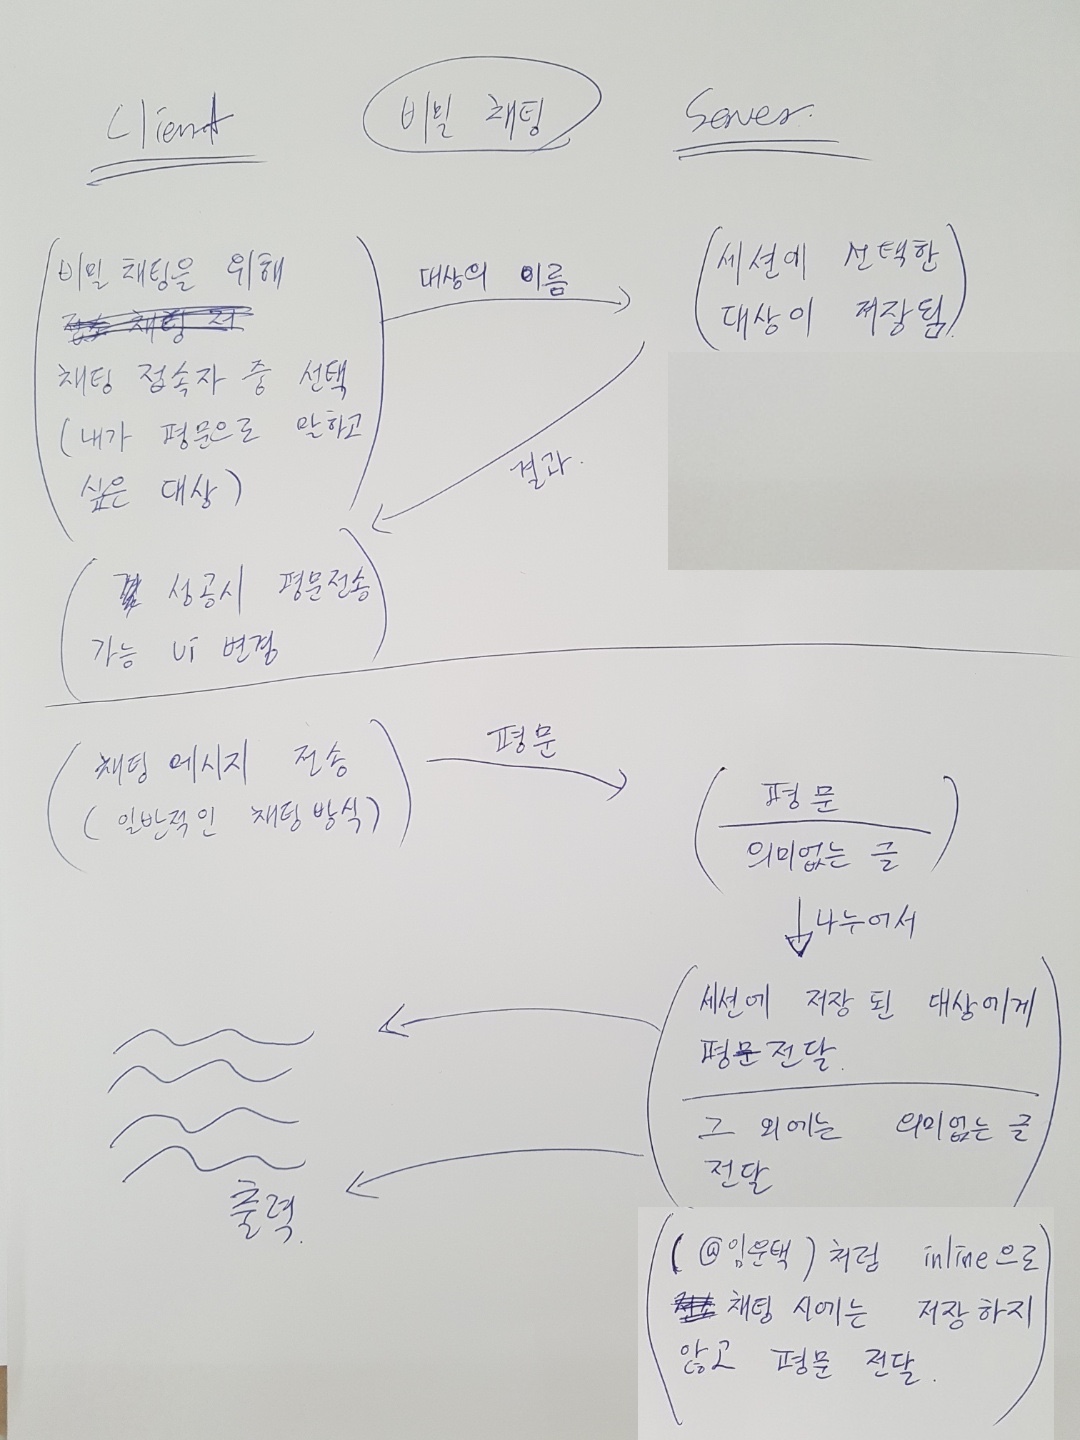 Client
비밀 채팅
Server.
비밀 채팅을 위해
채팅 접속자 중 선택
(내가 평문으로 말하고
싶은 대상)
대상의 이름
세션에 선택한
대상이 저장됨.
결과.
성공시 평문전송
가능 UI 변경
채팅 메시지 전송
(일반적인 채팅방식)
평문
평문
의미없는 글
나누어서
세션에 저장된 대상에게
평문전달.
그 외에는 의미없는 글
전달
출력.
(@임운택)처럼 inline으로
채팅 시에는 저장하지
않고 평문 전달.